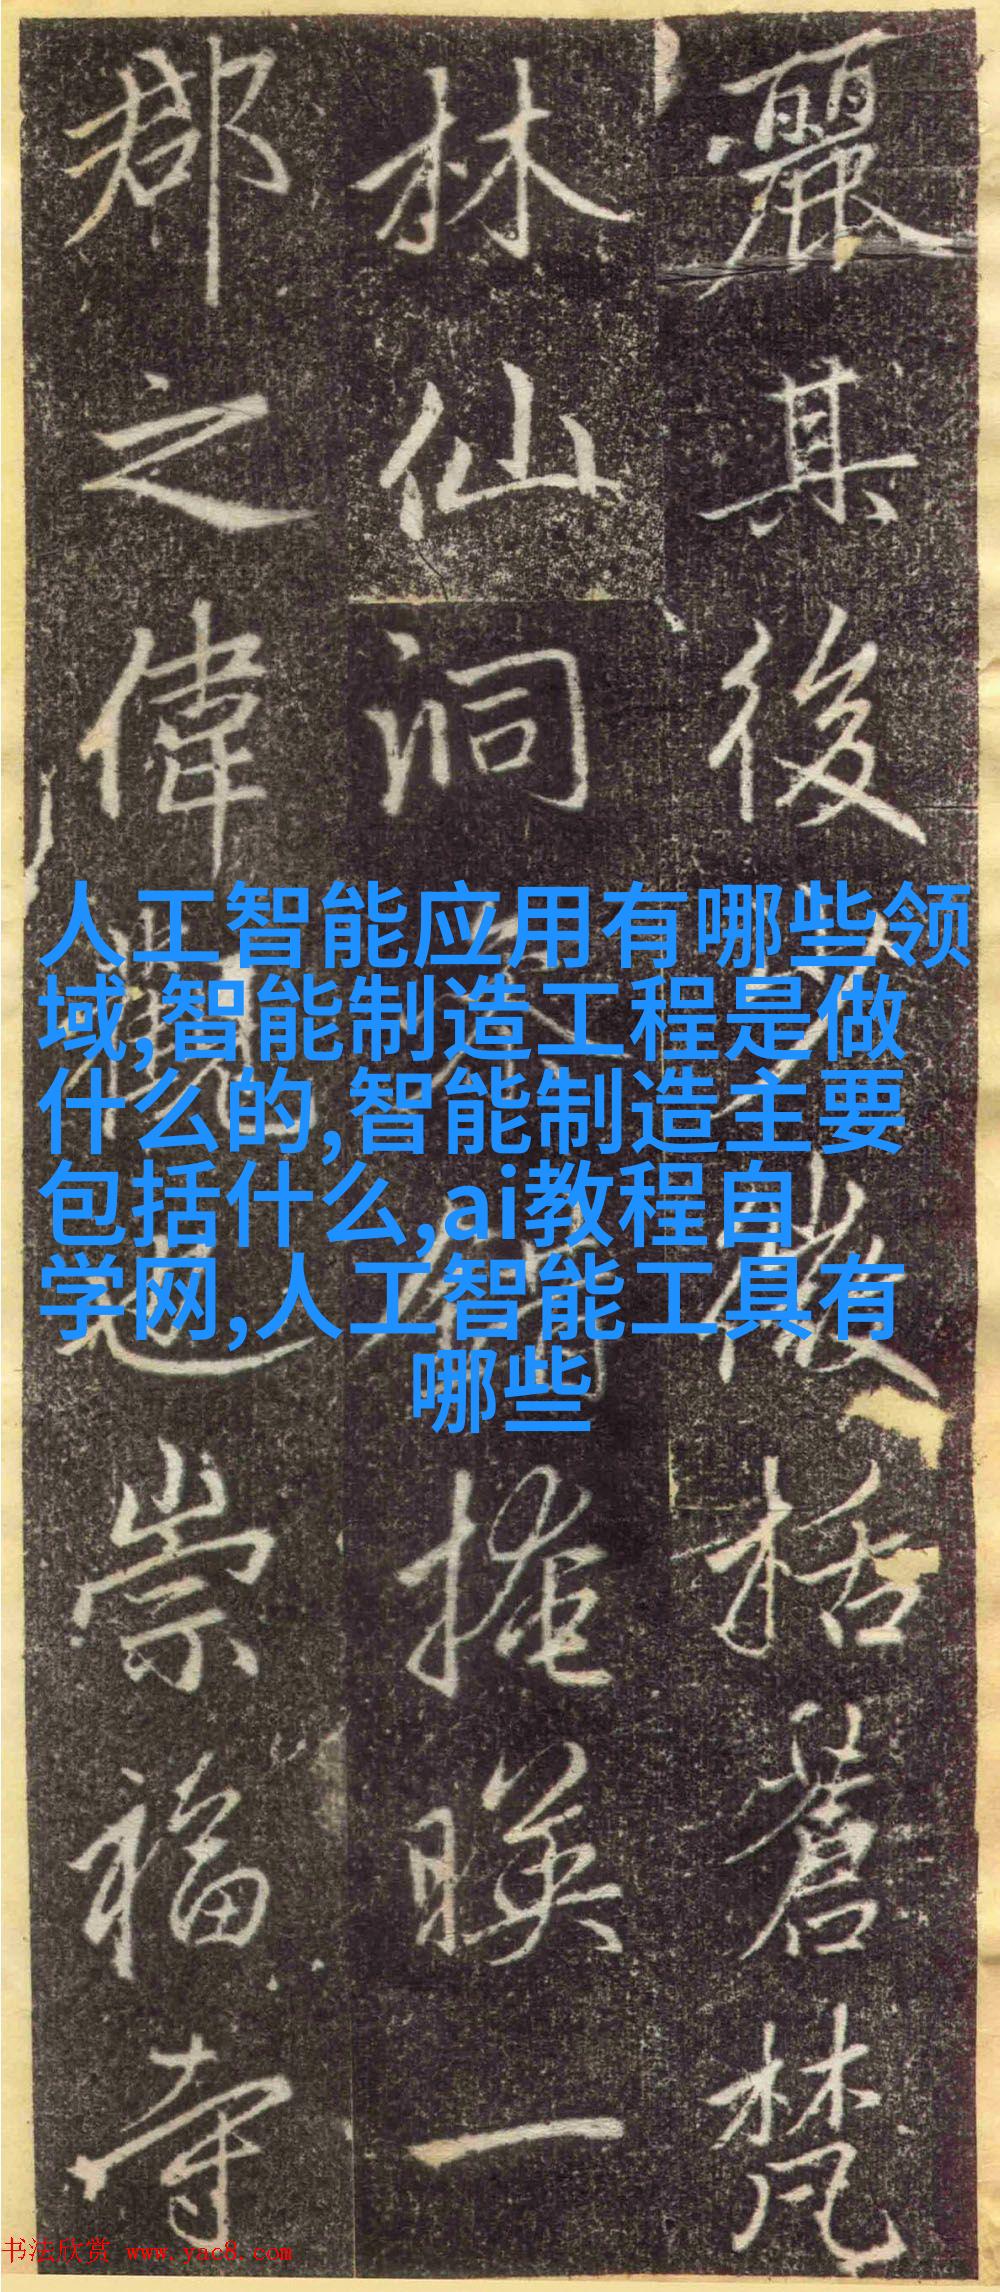 麗其後微括蒼梵
林仙洞掩暎一
郡之偉觀也崇福寺
人工智能应用有哪些领
域,智能制造工程是做
什么的,智能制造主要
包括什么,ai教程自
学网,人工智能工具有
哪些
书法欣赏 www.yac8.com